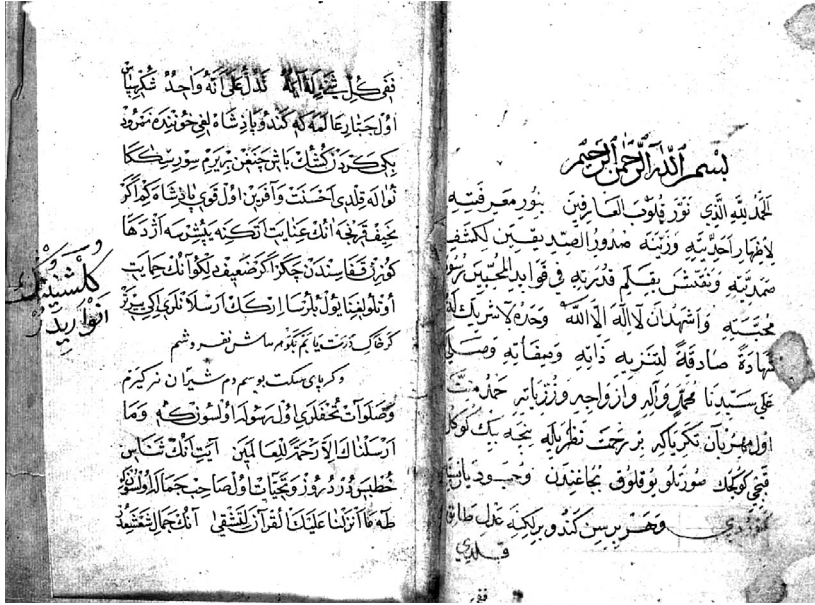 بسم الله الرحمن الرحيم
الحمد لله الذي نور قلوب العارفين بنور معرفته
لاظهار احديته وزينه صدور الصديقين لكشف
صمديته ونقش بقلم قدرته في فوايد المحبين رسو
محبته واشهد ان لا اله الا الله وحده لا شريك له
شهادة صادقة لتنزيه ذاته وصفاته وصلى
على سيدنا محمد وآله وازواجه وذرياته حمد منت
اول مهربان تكريه كه بر رحمت نظريله نجه بيك كوكل
صورتلو يوقلوق بوجاغندن وجود
وهر برسن كندو برلكنه عدل طانق
قلدي
ففي
ففي كل شيء له آية تدل على انه واحد شكر سپاس
اول جبار عالمه كه كندو پادشاهلغي خوننده نمرود
باش چنغن
نواله قلدي احسنت وآفرين اول قوي پادشاه كم اكر
نحيف قرنجه انك عنايت ازكنه يتشرسه اژدها
كوزن قفاسندن چكر اكر ضعيف دلكو آنك حمايت
اوتلولغنا يول بلرسا ارسلانلري
كر خاك درت يابم
وكر پاي سكت بوسم دم شيران نر كيرم
وصلوات تحفلري اول رسوله اولسون كه وما
ارسلناك الا رحمة للعالمين آيت انك ثناسن
خطبسن در درود وتحيات اول صاحب جماله اولسون كه
طه ما انزلنا عليك القرآن لتشقى آنك جمالي
كلشنينك
انواريدر